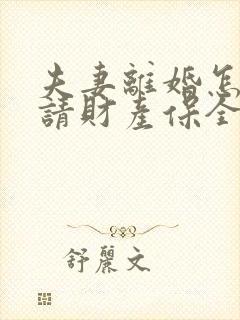 夫妻離婚怎
請財產保全
舒麗文